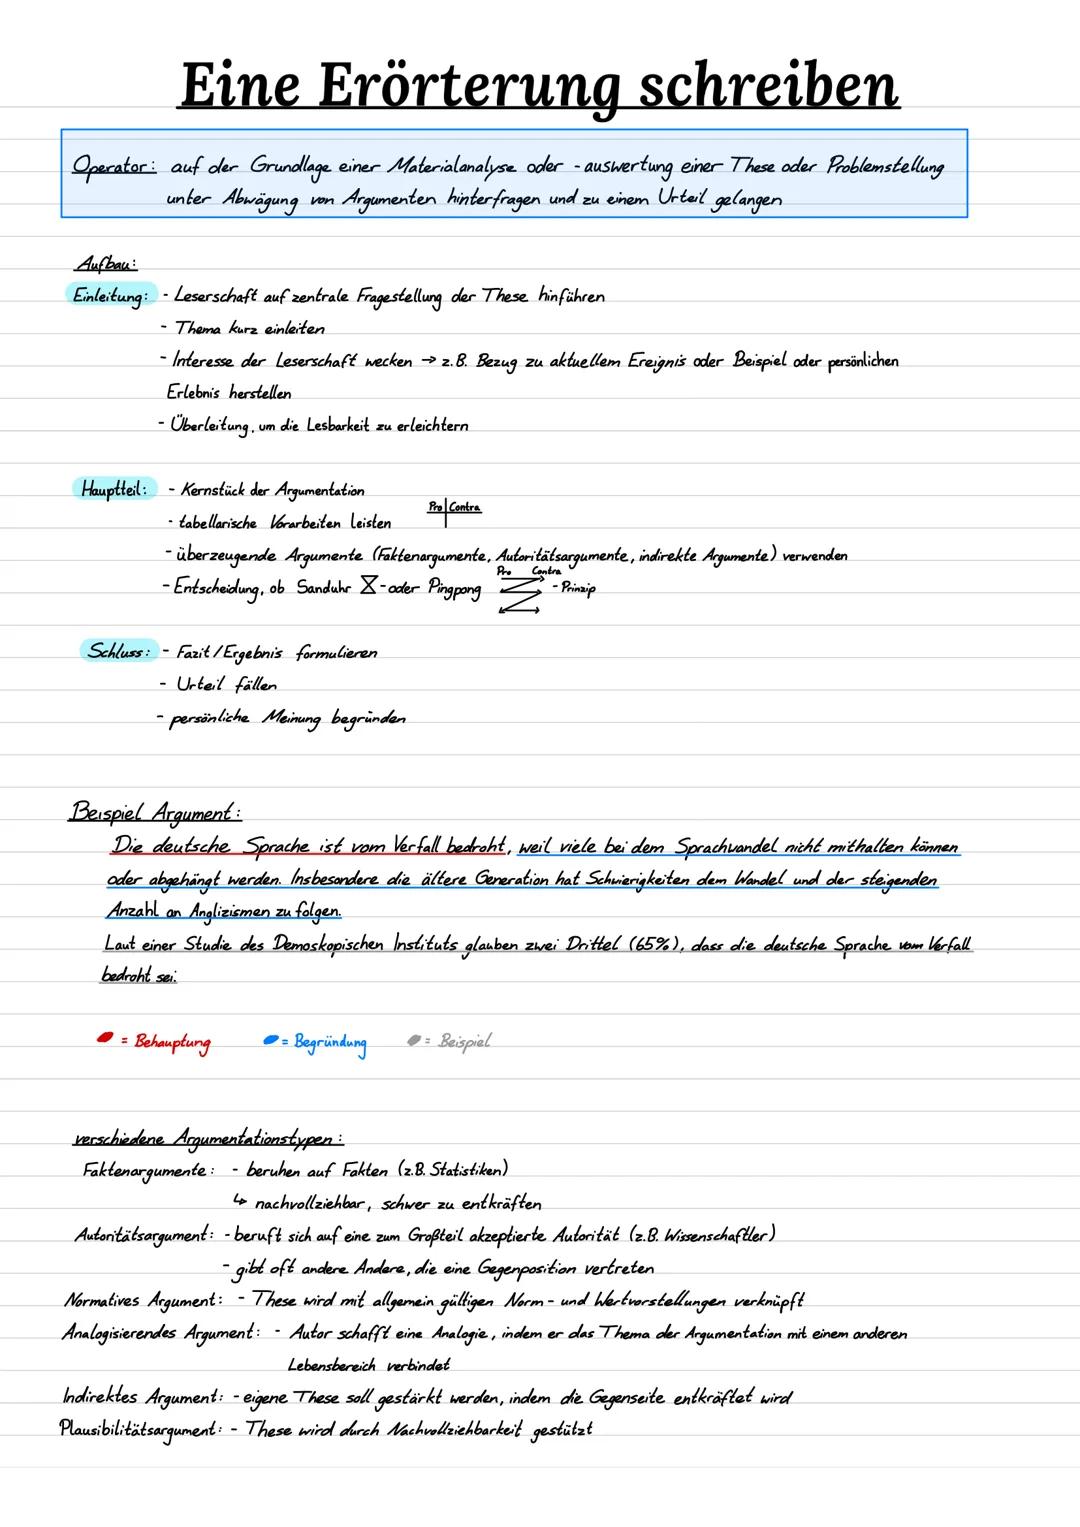 Eine Erörterung schreiben
Operator: auf der Grundlage einer Materialanalyse oder -auswertung einer These oder Problemstellung
unter Abwägung von Argumenten hinterfragen und zu einem Urteil gelangen
Aufbau:
Einleitung: - Leserschaft auf zentrale Fragestellung der These hinführen
- Thema kurz einleiten
- Interesse der Leserschaft wecken → z.B. Bezug zu aktuellem Ereignis oder Beispiel oder persönlichen
Erlebnis herstellen
- Überleitung, um die Lesbarkeit zu erleichtern
Hauptteil: - Kernstück der Argumentation
- tabellarische Vorarbeiten leisten Pro | Contra
- überzeugende Argumente (Faktenargumente, Autoritätsargumente, indirekte Argumente) verwenden
Pro Contra
- Entscheidung, ob Sanduhr - oder Pingpong - Prinzip
Schluss: - Fazit / Ergebnis formulieren
- Urteil fällen
- persönliche Meinung begründen
Beispiel Argument:
Die deutsche Sprache ist vom Verfall bedroht, weil viele bei dem Sprachwandel nicht mithalten können
oder abgehängt werden. Insbesondere die ältere Generation hat Schwierigkeiten dem Wandel und der steigenden
Anzahl an Anglizismen zu folgen.
Laut einer Studie des Demoskopischen Instituts glauben zwei Drittel (65%), dass die deutsche Sprache vom Verfall
bedroht sei.
= Behauptung = Begründung = Beispiel
verschiedene Argumentationstypen:
Faktenargumente: - beruhen auf Fakten (z.B. Statistiken)
↳ nachvollziehbar, schwer zu entkräften
Autoritätsargument: - beruft sich auf eine zum Großteil akzeptierte Autorität (z.B. Wissenschaftler)
- gibt oft andere Andere, die eine Gegenposition vertreten
Normatives Argument: - These wird mit allgemein gültigen Norm - und Wertvorstellungen verknüpft
Analogisierendes Argument: - Autor schafft eine Analogie, indem er das Thema der Argumentation mit einem anderen
Lebensbereich verbindet
Indirektes Argument: - eigene These soll gestärkt werden, indem die Gegenseite entkräftet wird
Plausibilitätsargument: - These wird durch Nachvollziehbarkeit gestützt